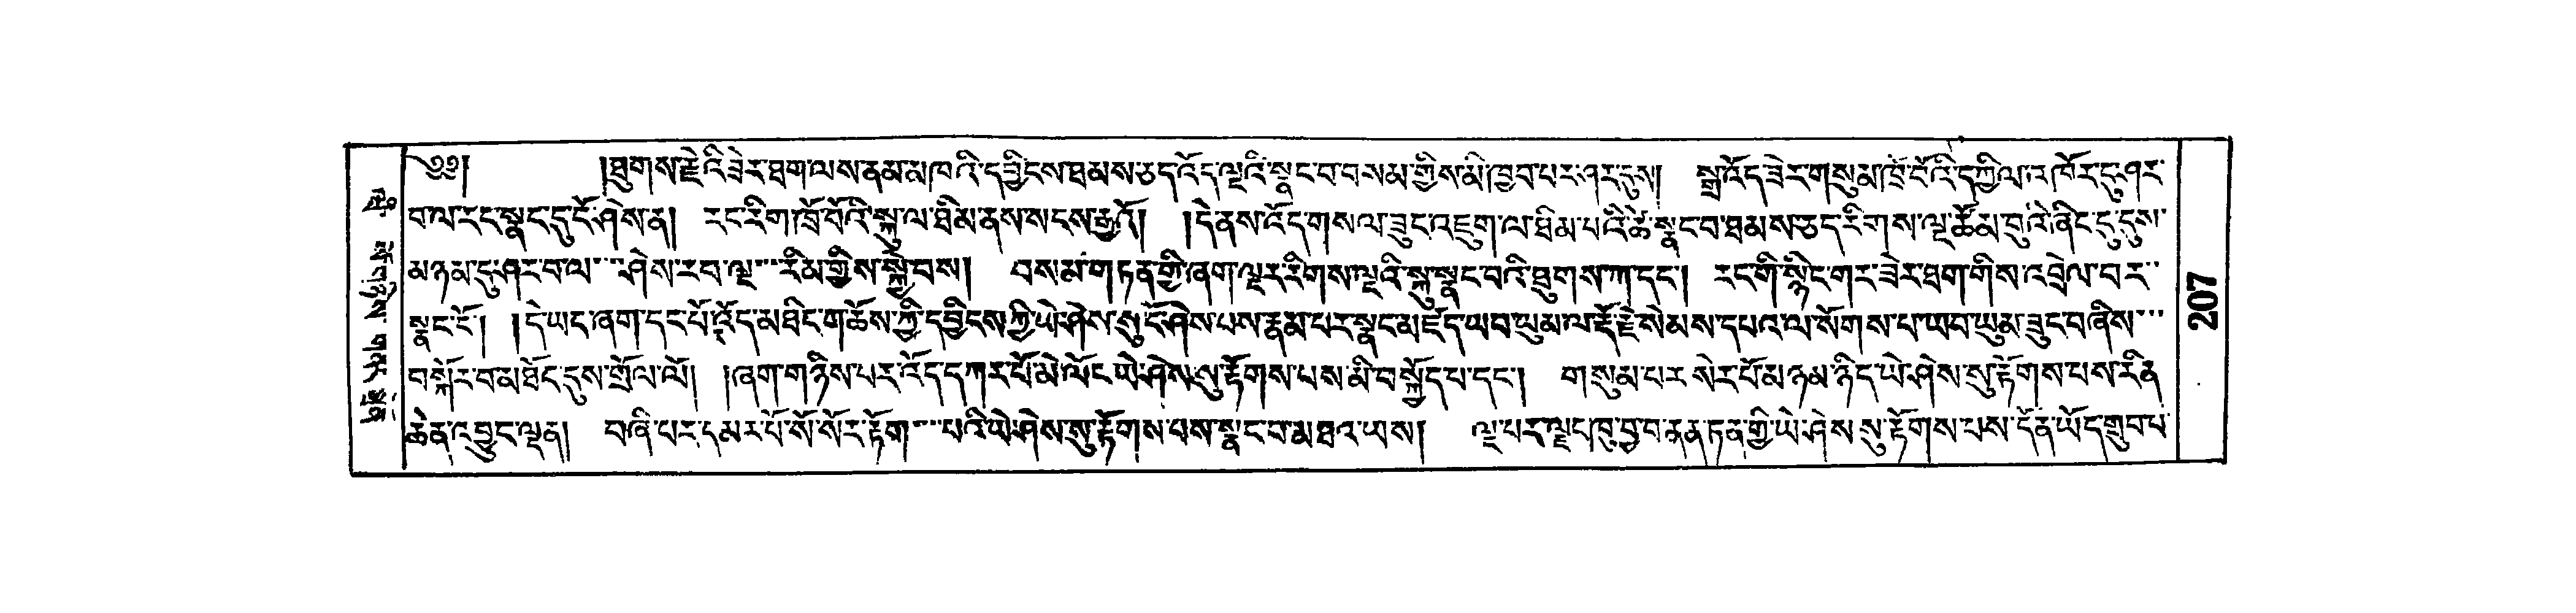 ༄༅། །ཐུགས་རྗེའི་ཟེར་ཐག་ལས་ནམ་མཁའི་དབྱིངས་ཐམས་ཅད་འོད་ལྔའི་སྣང་བ་བསམ་གྱིས་མི་ཁྱབ་པར་ཤར་དུས། སྒྲ་འོད་ཟེར་གསུམ་ཁྲོ་བོའི་དཀྱིལ་འཁོར་དུ་ཤར་
བ་ལ་རང་སྣང་དུ་ངོ་ཤེས་ན། རང་རིག་ཁྲོ་བོའི་སྐུ་ལ་ཐིམ་ནས་སངས་རྒྱའོ། །དེ་ནས་འོད་གསལ་ཟུང་འཇུག་ལ་ཐིམ་པའི་ཚེ་སྣང་བ་ཐམས་ཅད་རིགས་ལྔ་ཚོམ་བུའི་ཞིང་དུ་དུས་
མཉམ་དུ་ཤར་བ་ལ་ཤེས་རབ་ལྔ་རིམ་གྱིས་སྐྱེ་བས། བསམ་གཏན་གྱི་ཞག་ལྔར་རིགས་ལྔའི་སྐུ་སྣང་བའི་ཐུགས་ཀ་དང་། རང་གི་སྙིང་གར་ཟེར་ཐག་གིས་འབྲེལ་བར་
སྣང་ངོ་། །དེ་ཡང་ཞག་དང་པོ་འོད་མཐིང་ག་ཆོས་ཀྱི་དབྱིངས་ཀྱི་ཡེ་ཤེས་སུ་ངོ་ཤེས་པས་རྣམ་པར་སྣང་མཛད་ཡབ་ཡུམ་ལ་རྡོ་རྗེ་སེམས་དཔའ་ལ་སོགས་པ་ཡབ་ཡུམ་ཟུང་བཞིས་
བསྐོར་བ་མཐོང་དུས་གྲོལ་ལོ། །ཞག་གཉིས་པར་འོད་དཀར་པོ་མེ་ལོང་ཡེ་ཤེས་སུ་རྟོགས་པས་མི་བསྐྱོད་པ་དང་། གསུམ་པར་སེར་པོ་མཉམ་ཉིད་ཡེ་ཤེས་སུ་རྟོགས་པས་རིན་
ཆེན་འབྱུང་ལྡན། བཞི་པར་དམར་པོ་སོ་སོར་རྟོག་པའི་ཡེ་ཤེས་སུ་རྟོགས་པས་སྣང་བ་མཐའ་ཡས། ལྔ་པར་ལྗང་ཁུ་བྱ་བ་ནན་ཏན་གྱི་ཡེ་ཤེས་སུ་རྟོགས་པས་དོན་ཡོད་གྲུབ་པ་
207